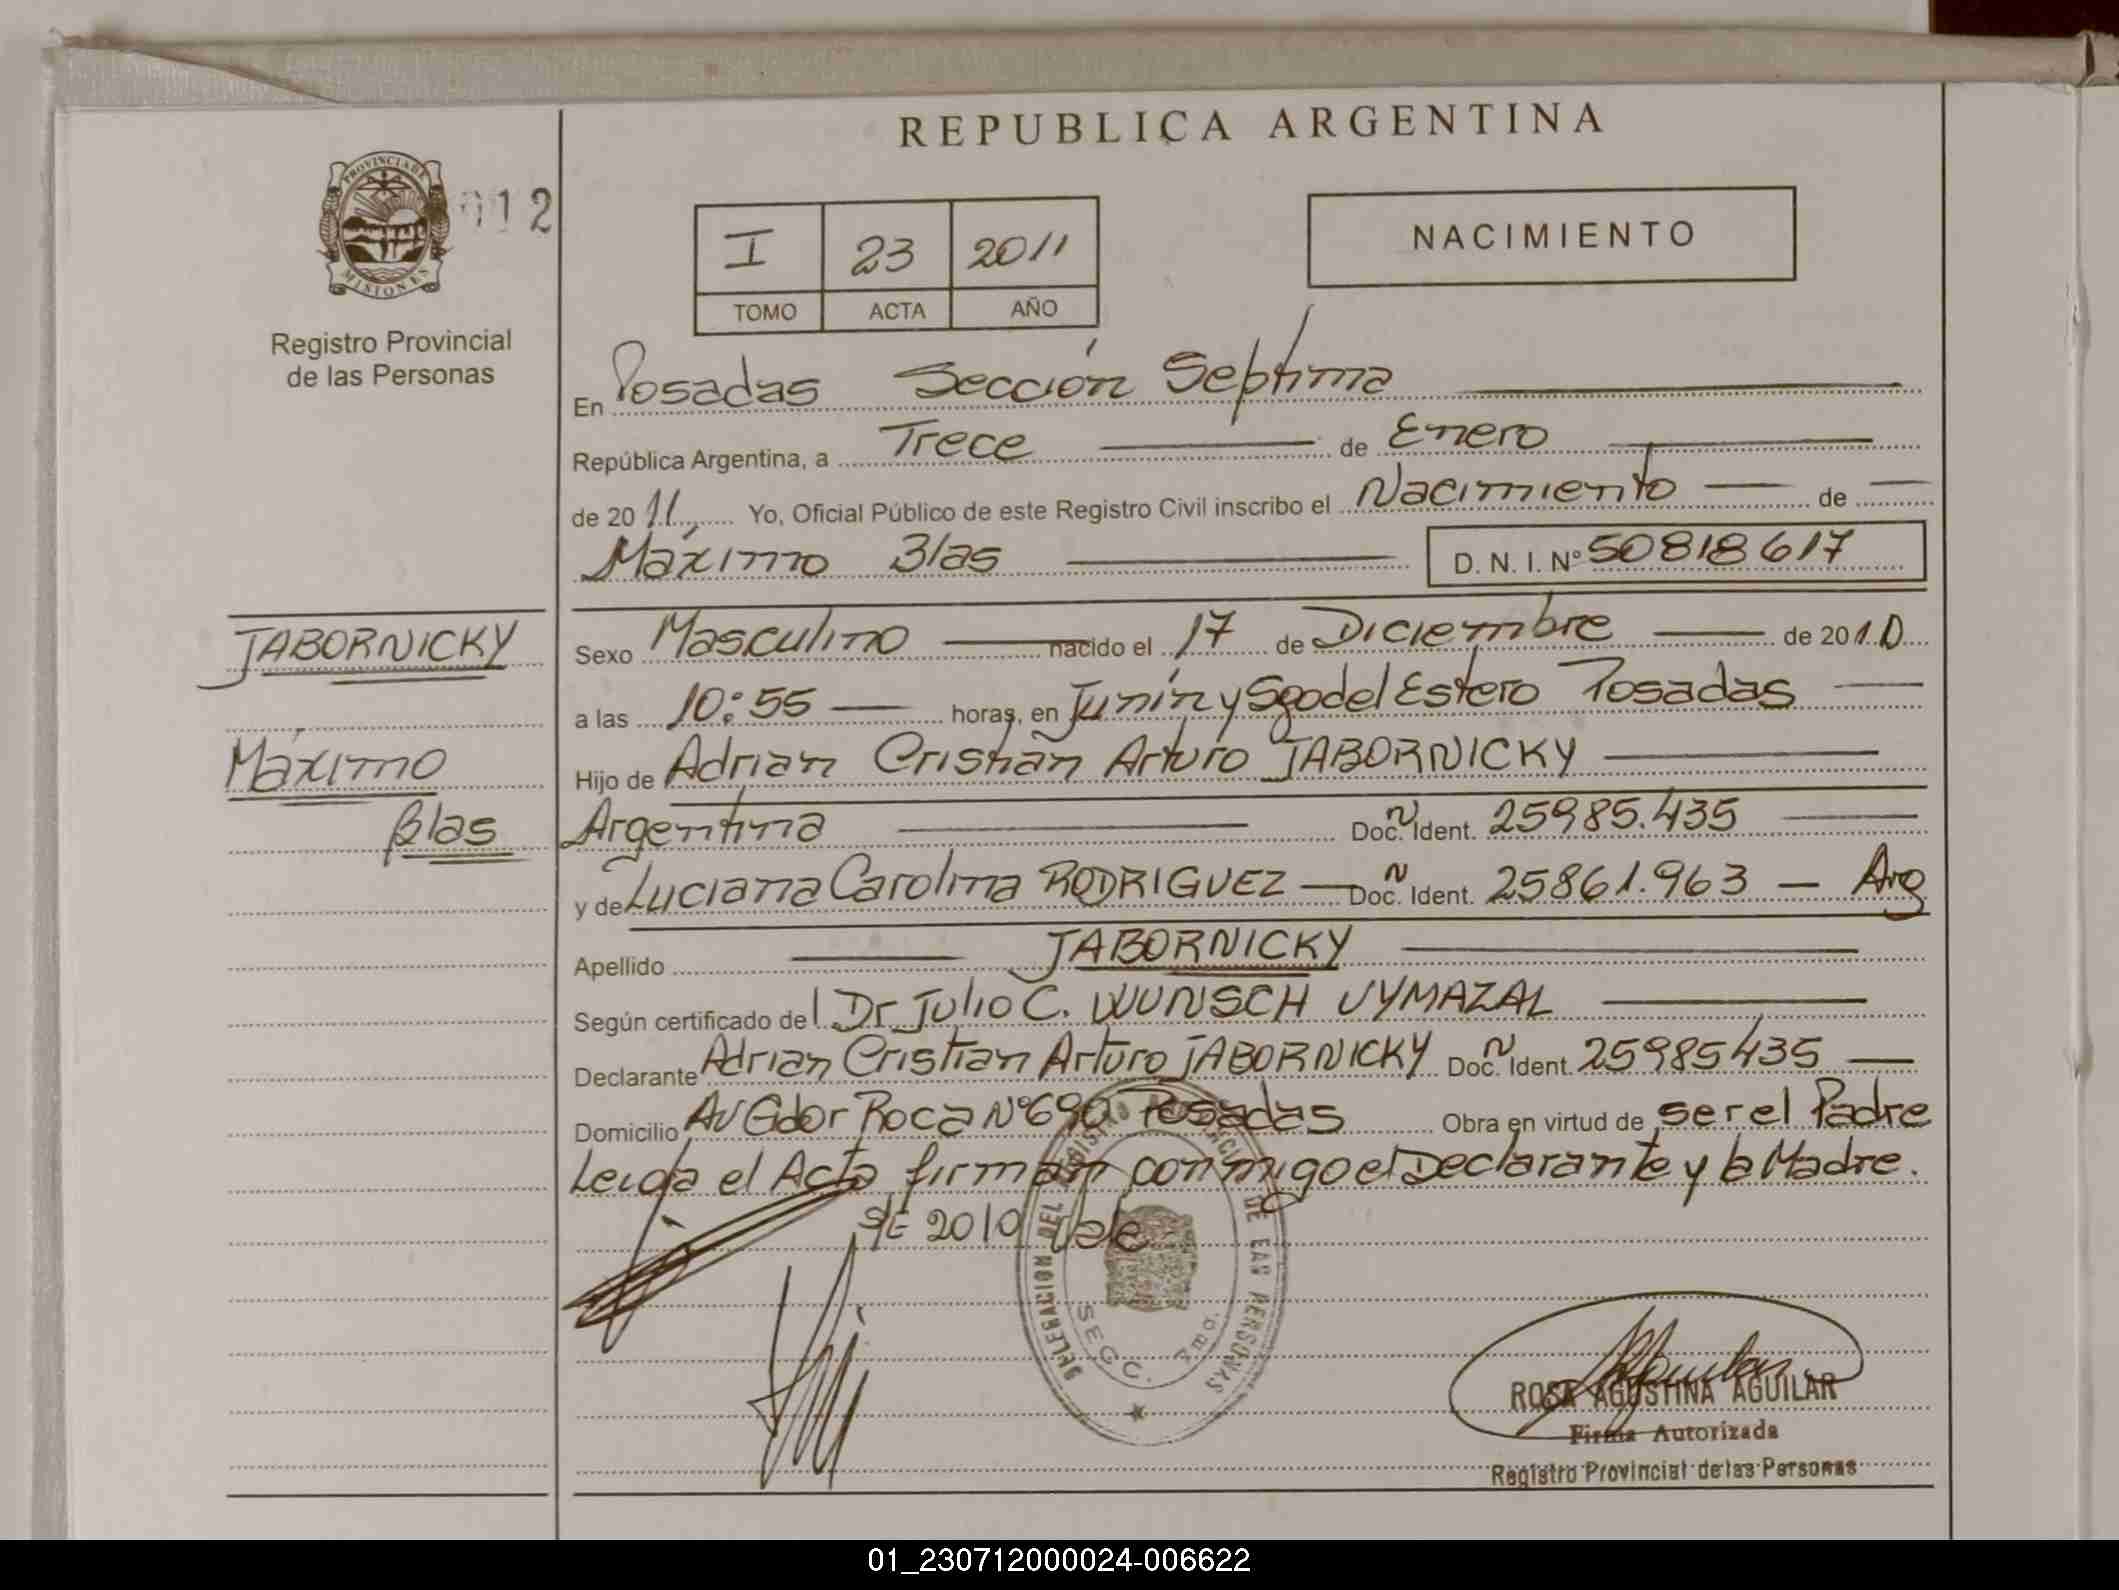 REPUBLICA ARGENTINA
PROVINCIA DE
MISIONES
012
Registro Provincial
de las Personas
I 23 2011
TOMO ACTA AÑO
NACIMIENTO
En Posadas Sección Septima
República Argentina, a Trece de Enero
de 2011 Yo, Oficial Público de este Registro Civil inscribo el Nacimiento de
Máximo Blas D. N. I. Nº 50818617
JABORNICKY
Máximo
Blas
Sexo Masculino nacido el 17 de Diciembre de 2010
a las 10:55 horas, en Junín y Sgo del Estero Posadas
Hijo de Adrian Cristian Arturo JABORNICKY
Argentina Doc. Ident. 25985.435
y de Luciana Carolina RODRIGUEZ Doc. Ident. 25861.963 - Arg
Apellido JABORNICKY
Según certificado del Dr Julio C. WUNSCH VYMAZAL
Declarante Adrian Cristian Arturo JABORNICKY Doc. Ident. 25985435
Domicilio Av Gdor Roca Nº 690 Posadas Obra en virtud de ser el Padre
Leida el Acta firman conmigo el Declarante y la Madre.
S/E 2010 Vale
DELEGACION DEL REGISTRO PROVINCIAL DE LAS PERSONAS
SECC. 7ma.
ROSA AGUSTINA AGUILAR
Firma Autorizada
Registro Provincial de las Personas
01_230712000024-006622